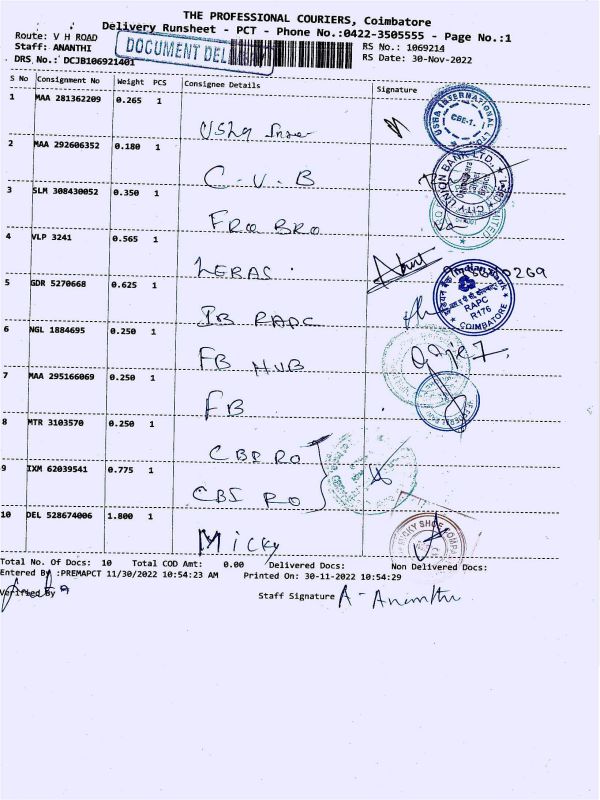 THE PROFESSIONAL COURIERS, Coimbatore
Delivery Runsheet - PCT - Phone No.:0422-3505555 - Page No.:1
Route: V H ROAD
RS No.: 1069214
Staff: ANANTHI
DOCUMENT DEL
RS Date: 30-Nov-2022
DRS No.: DCJB106921401
S No Consignment No Weight PCS Consignee Details Signature
1 MAA 281362209 0.265 1
USHA INTERNATIONAL
CBE-1.
2 MAA 292606352 0.180 1
C-U-B
CITY UNION BANK LTD.
3 SLM 308430052 0.350 1
FRO BRO
4 VLP 3241 0.565 1
5 GDR 5270668 0.625 1
IB RAPC
Indian Bank
RAPC
R176
COIMBATORE
6 NGL 1884695 0.250 1
FB HUB
7 MAA 295166069 0.250 1
FB
8 MTR 3103570 0.250 1
RO
9 IXM 62039541 0.775 1
RO
10 DEL 528674006 1.800 1
Micky
MICKY SHOE COMPANY
Total No. Of Docs: 10 Total COD Amt: 0.00 Delivered Docs: Non Delivered Docs:
Entered By :PREMAPCT 11/30/2022 10:54:23 AM Printed On: 30-11-2022 10:54:29
Verified By
Staff Signature A-Ananthi